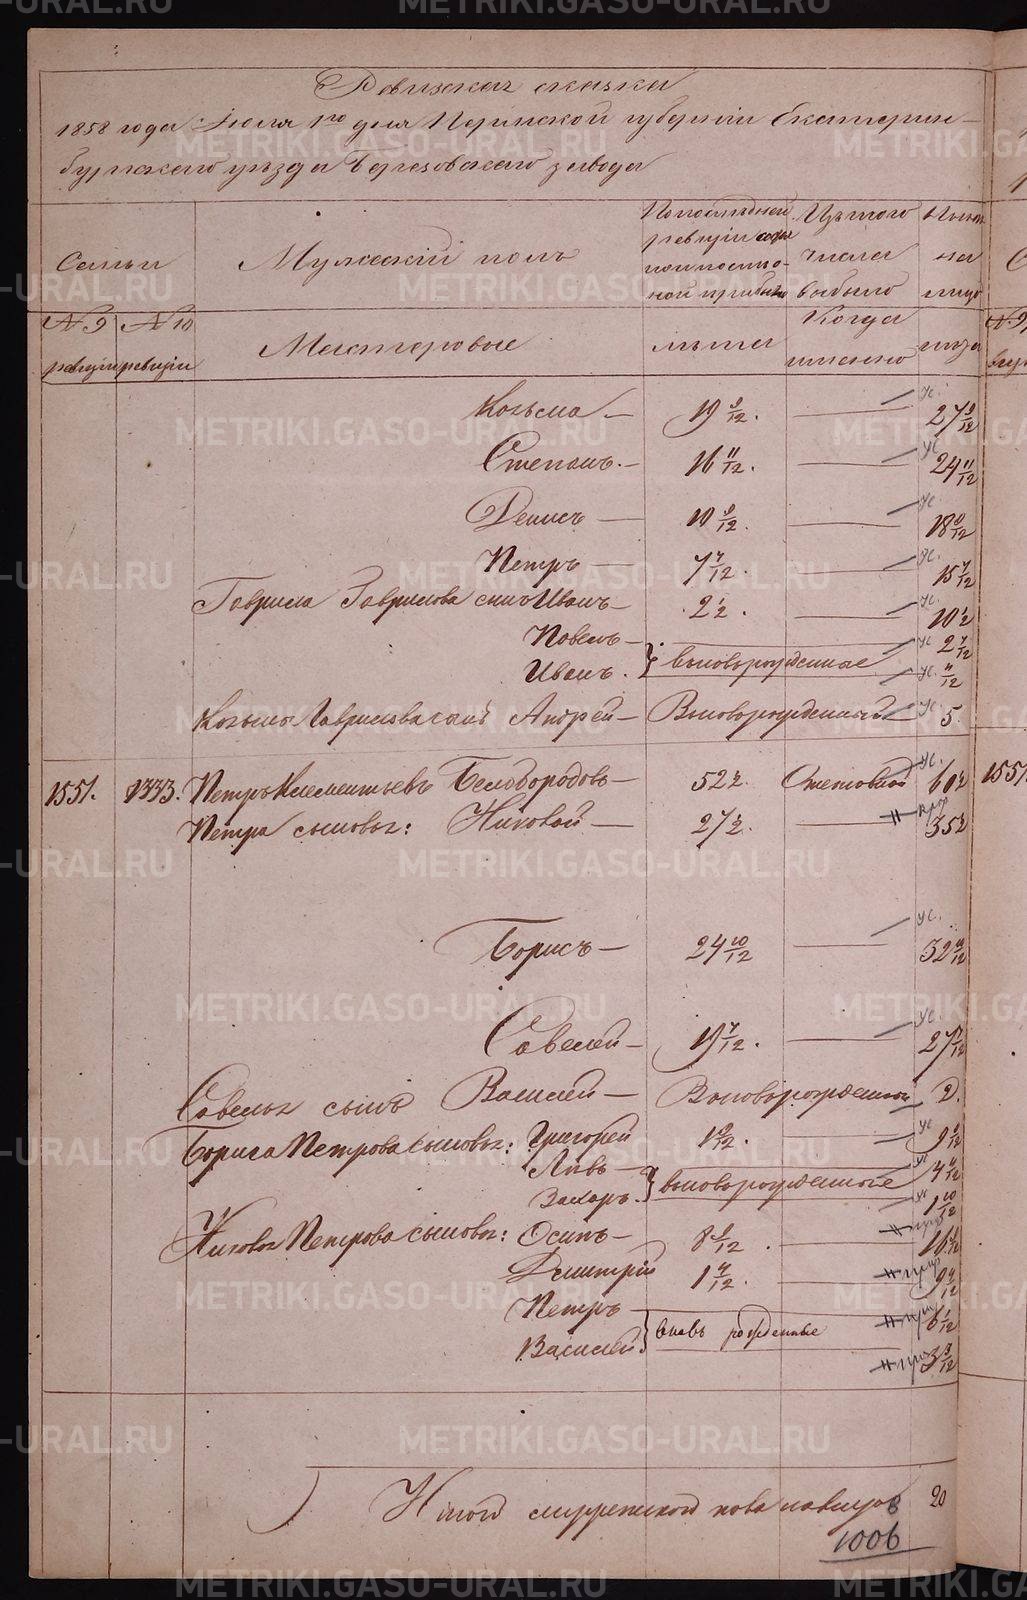 Ревизская сказка
1858 года Июля 1го дня Пермской губернии Екатерин-
бургского уезда Березовскаго завода
Семьи
Мужеский полъ
По последней ревизии состо
Изъ того числа выбыло
Ныне на лицо
№ 9 ревизии
№ 10 ревизии
Мастеровые
лета
Когда именно
лета
Козьма — 19 9/12. — ус. 27 9/12
Степанъ. — 16 11/12. — ус. 24 11/12
Денисъ — 10 9/12. — ус. 18 9/12
Петръ — 7 7/12. — ус. 15 7/12
Гаврила Гаврилова сынъ Иванъ — 2 1/2. — ус. 10 1/2
Павелъ — ус 2 7/12
Иванъ. } вновьрожденные ус. 11/12
Козьмы Гаврилова сынъ Андрей — Вновьрожденный ус. 5.
1551. 1333. Петръ Клементьевъ Белобородовъ — 52 1/2. Отставной ус. 60 1/2
Петра сыновья: Никовай — 27 1/2. — 35 1/2
Борисъ — 24 10/12 — ус. 32 10/12
Савелей — 19 7/12. — ус. 27 7/12
Савелья сынъ Василей — Вновьрожденный 2.
Бориса Петрова сыновья: Григорей 1 9/12. — ус 9 9/12
Левъ — ус 4 11/12
Захаръ. } вновьрожденные ус 1 10/12
Никовая Петрова сыновья: Осипъ — 8 6/12. — 16 6/12
Дмитрей 1 4/12. — 9 4/12
Петръ — 6 1/12
Василей. } вновь рожденные 3 9/12
Итого мужескаго пола на лицо 20
1006
METRIKI.GASO-URAL.RU